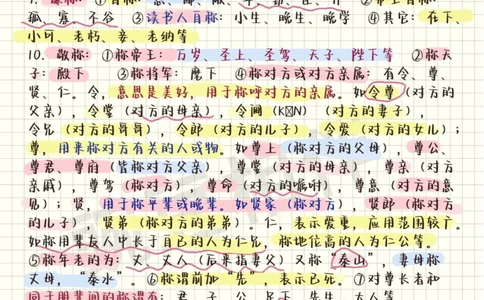 孤、寡、不谷 ③读书人自称：小生、晚生、晚学 ④其它：在下、
小可、老朽、妾、老衲等
10. 敬称：①称帝王：万岁、圣上、圣驾、天子、陛下等 ②称天
子：殿下 ③称将军：麾下 ④称对方或对方亲属：有令、尊、
贤、仁。令，意思是美好，用于称呼对方的亲属。如令尊（对方的
父亲），令堂（对方的母亲），令阃（KǓN）（对方的妻子），
令兄（对方的哥哥），令郎（对方的儿子），令爱（对方的女儿）；
尊，用来称对方有关的人或物。如尊上（称对方的父母），尊公、
尊君、尊府（皆称对方父亲） 尊堂（对方的母亲），尊亲（对方
亲戚），尊驾（称对方），尊命（对方的嘱咐），尊意（对方的意
见）；贤，用于称平辈或晚辈，如贤家（称对方），贤郎（称对方
的儿子），贤弟（称对方的弟弟）。仁，表示爱重，应用范围较广。
如称同辈友人中长于自己的人为仁兄，称地位高的人为仁公等。
⑤称年老的为：丈、丈人（后来指妻父）又称“泰山”，妻母称
丈母，“泰水”。⑥称谓前加“先”，表示已死。⑦对尊长者和